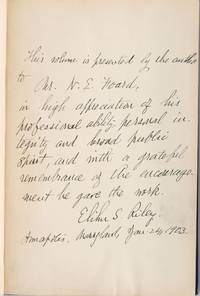 This volume is presented by the author
to Mr. N. E. Foard,
in high appreciation of his
professional ability, personal in-
tegrity and broad public
spirit and with a grateful
remembrance of the encourage-
ment he gave the work.
Elihu S. Riley.
Annapolis, Maryland, Jan. 1903.